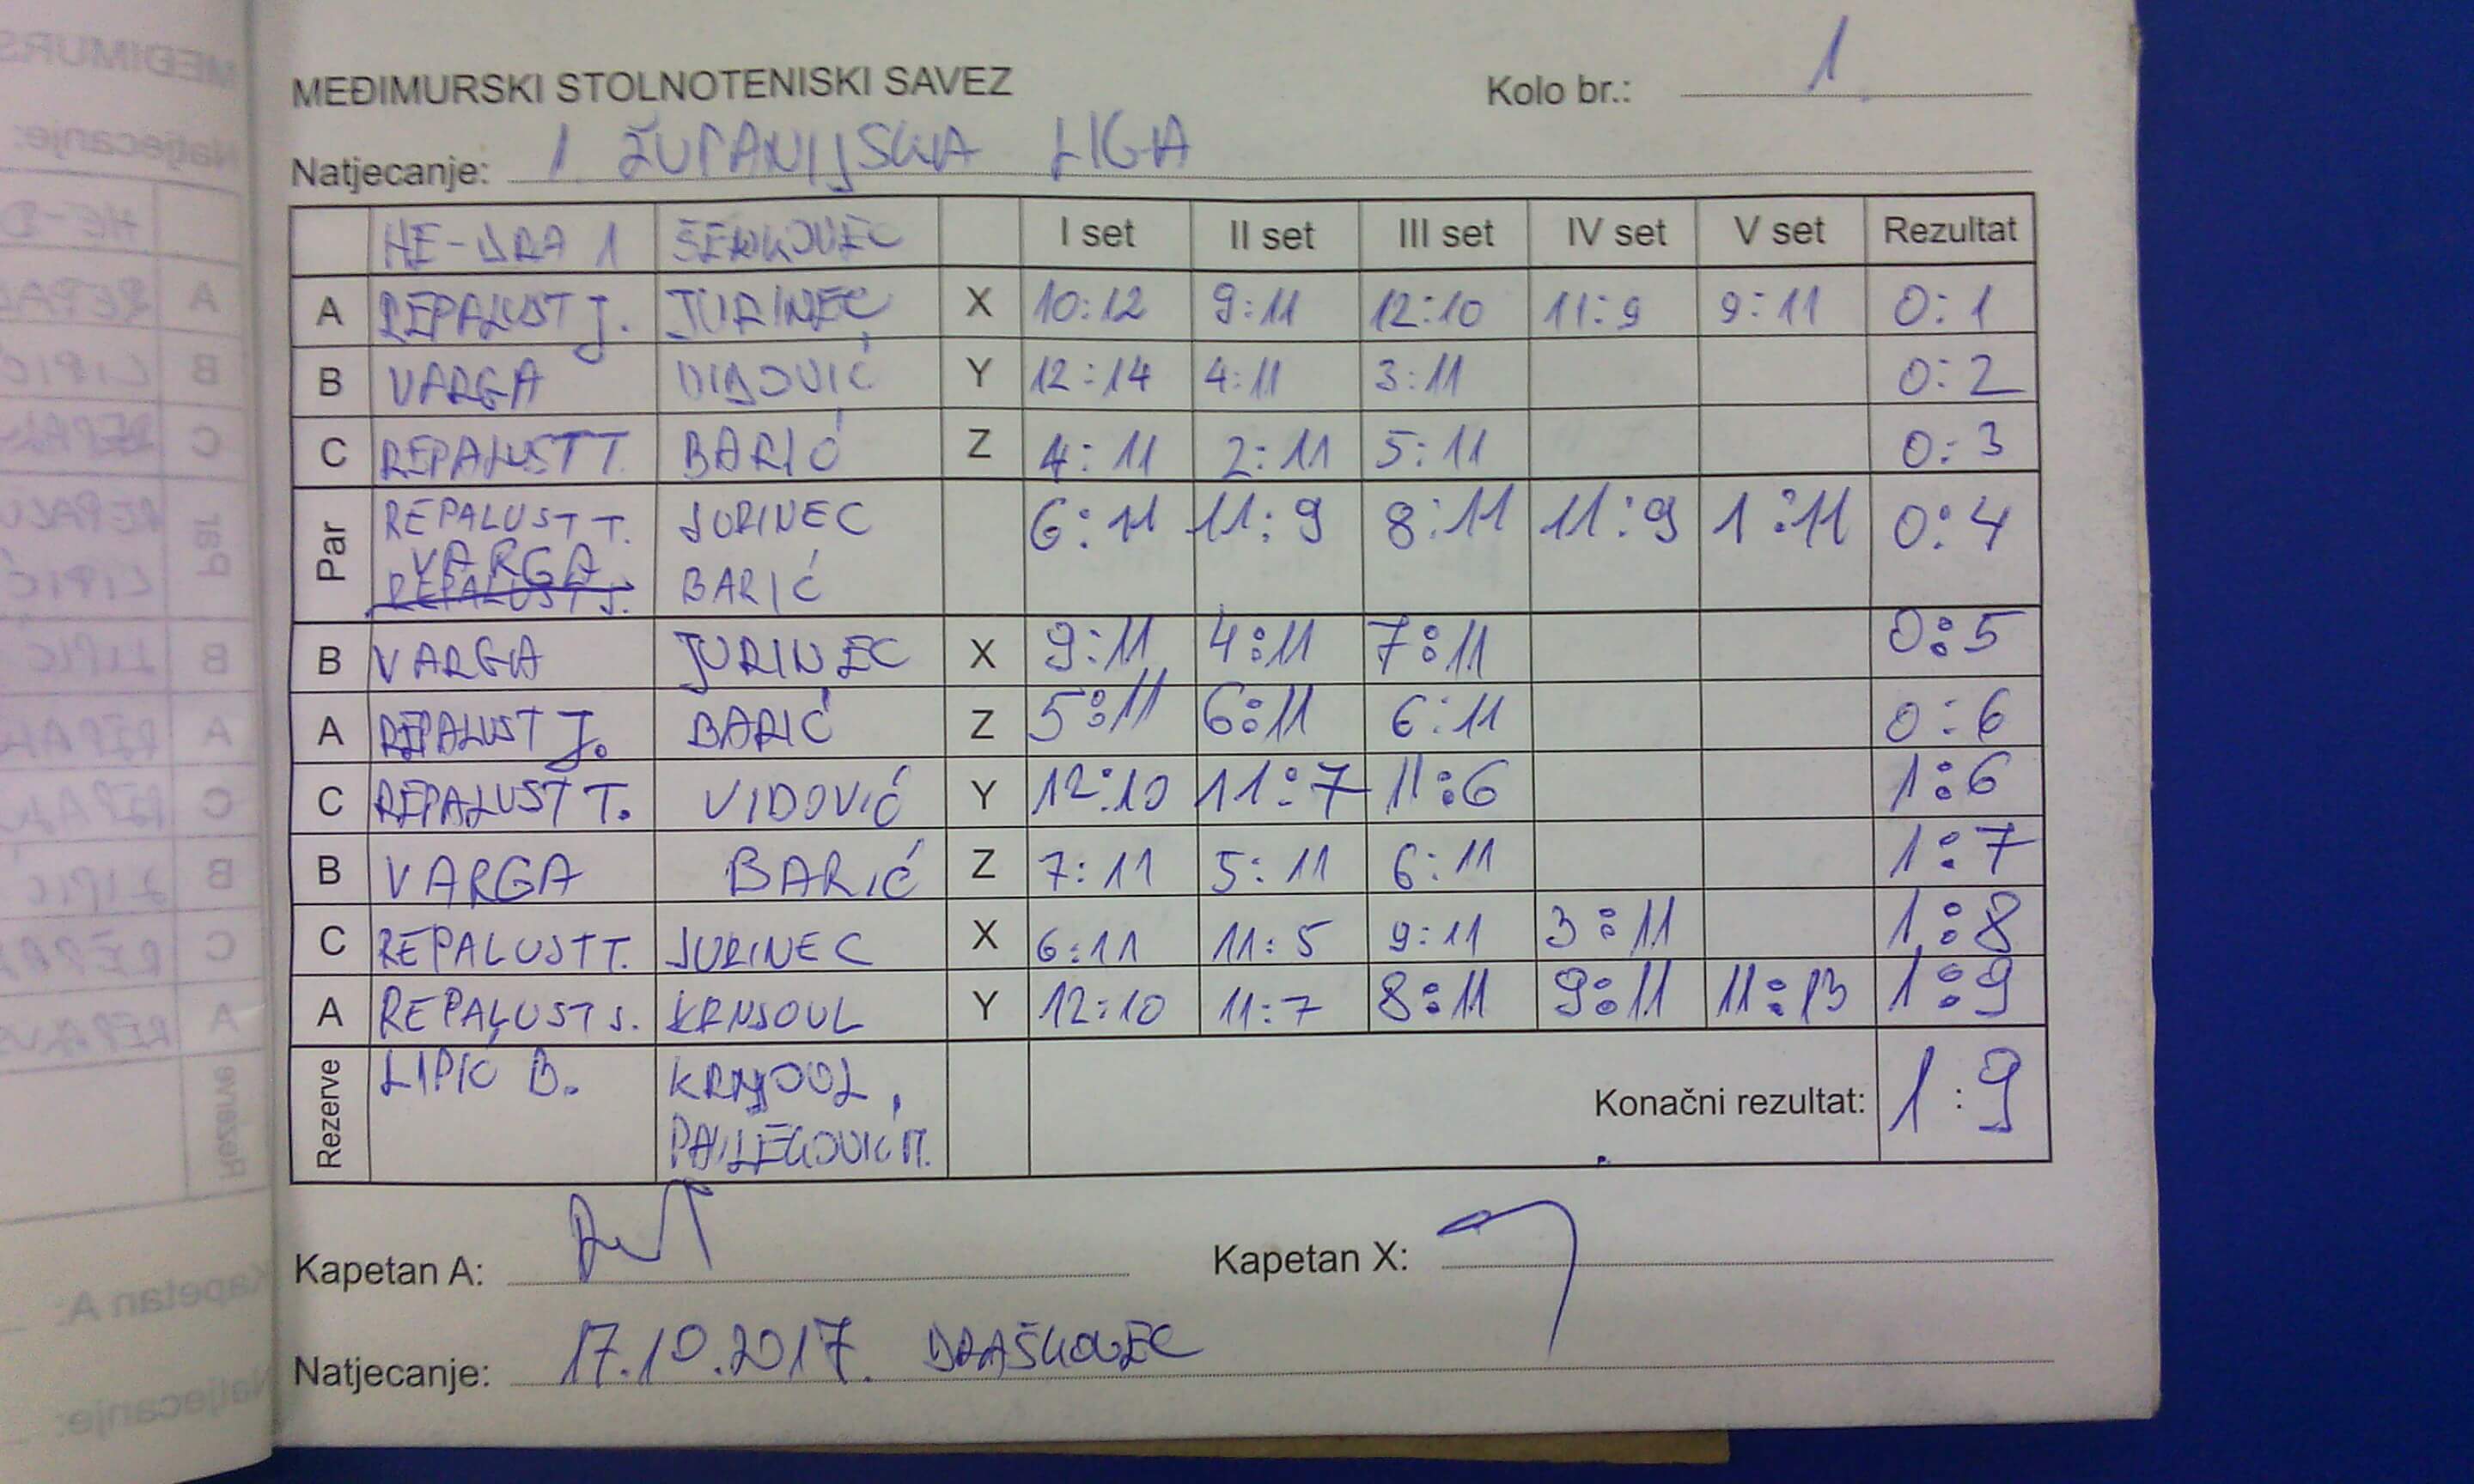 MEĐIMURSKI STOLNOTENISKI SAVEZ Kolo br.: 1.
Natjecanje: 1 ŽUPANIJSKA LIGA
HE-DRA 1 ŠENKOVEC I set II set III set IV set V set Rezultat
A REPALUST J. JURINEC X 10:12 9:11 12:10 11:9 9:11 0:1
B VARGA VIDOVIĆ Y 12:14 4:11 3:11 0:2
C REPALUST T. BARIĆ Z 4:11 2:11 5:11 0:3
Par REPALUST T. JURINEC 6:11 11:9 8:11 11:9 1:11 0:4
VARGA
REPALUST J. BARIĆ
B VARGA JURINEC X 9:11 4:11 7:11 0:5
A REPALUST J. BARIĆ Z 5:11 6:11 6:11 0:6
C REPALUST T. VIDOVIĆ Y 12:10 11:7 11:6 1:6
B VARGA BARIĆ Z 7:11 5:11 6:11 1:7
C REPALUST T. JURINEC X 6:11 11:5 9:11 3:11 1:8
A REPALUST J. KRNJOUL Y 12:10 11:7 8:11 9:11 11:13 1:9
Rezerve LIPIĆ B. KRNJOUL,
PAVLEKOVIĆ M.
Konačni rezultat: 1:9
Kapetan A: Kapetan X:
Natjecanje: 17.10.2017. DRAŠKOVEC